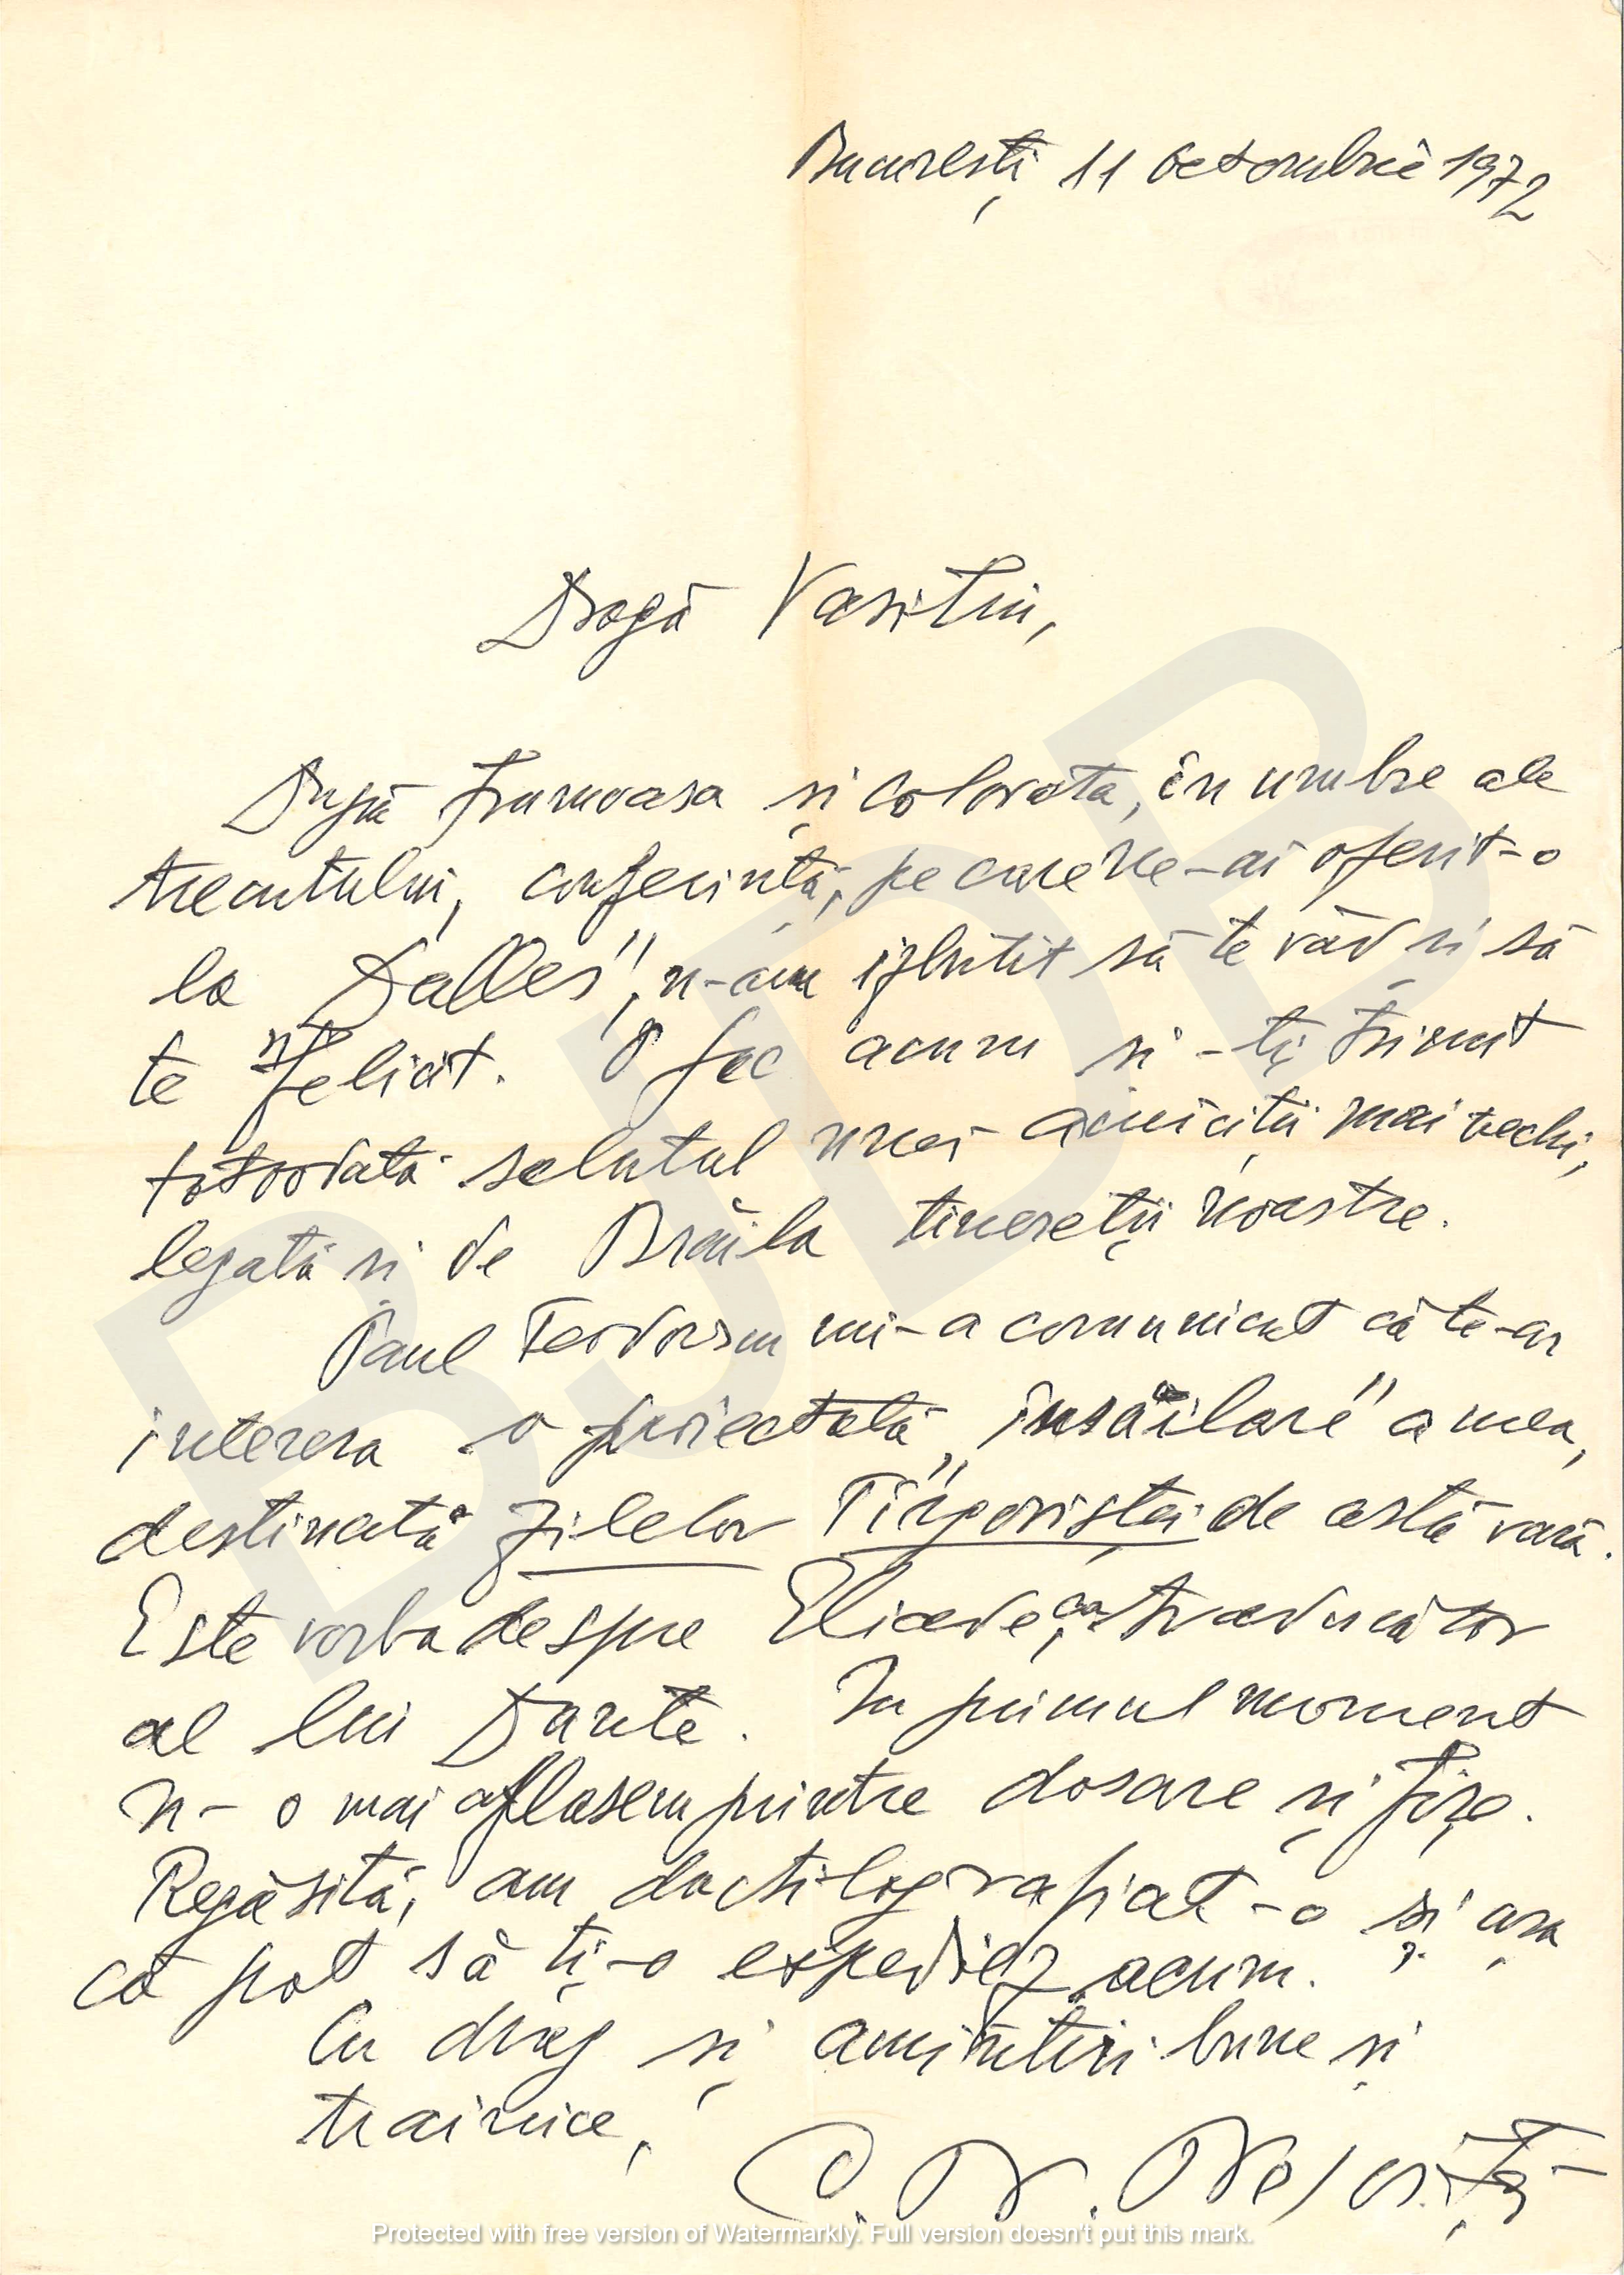 București, 11 octombrie 1972
Dragă Vasiliu,
După frumoasa și colorata, în umbre ale
trecutului, conferință, pe care ne-ai oferit-o
la "Dalles", n-am izbutit să te văd și să
te felicit. O fac acum și-ți trimit
totodată salutul unei amiciții mai vechi,
legată și de Brăila tinereții noastre.
Paul Teodorescu mi-a comunicat că te-ar
interesa o proiectată „însăilare" a mea,
destinată Zilelor Tîrgoviștei de astă vară.
Este vorba despre Eliade, ca traducător
al lui Dante. In primul moment
n-o mai aflasem printre dosare și fișe.
Regăsită, am dactilografiat-o și așa
că pot să ți-o expediez acum.
Cu drag și amintiri bune și
trainice,
BJDB
Protected with free version of Watermarkly. Full version doesn't put this mark.